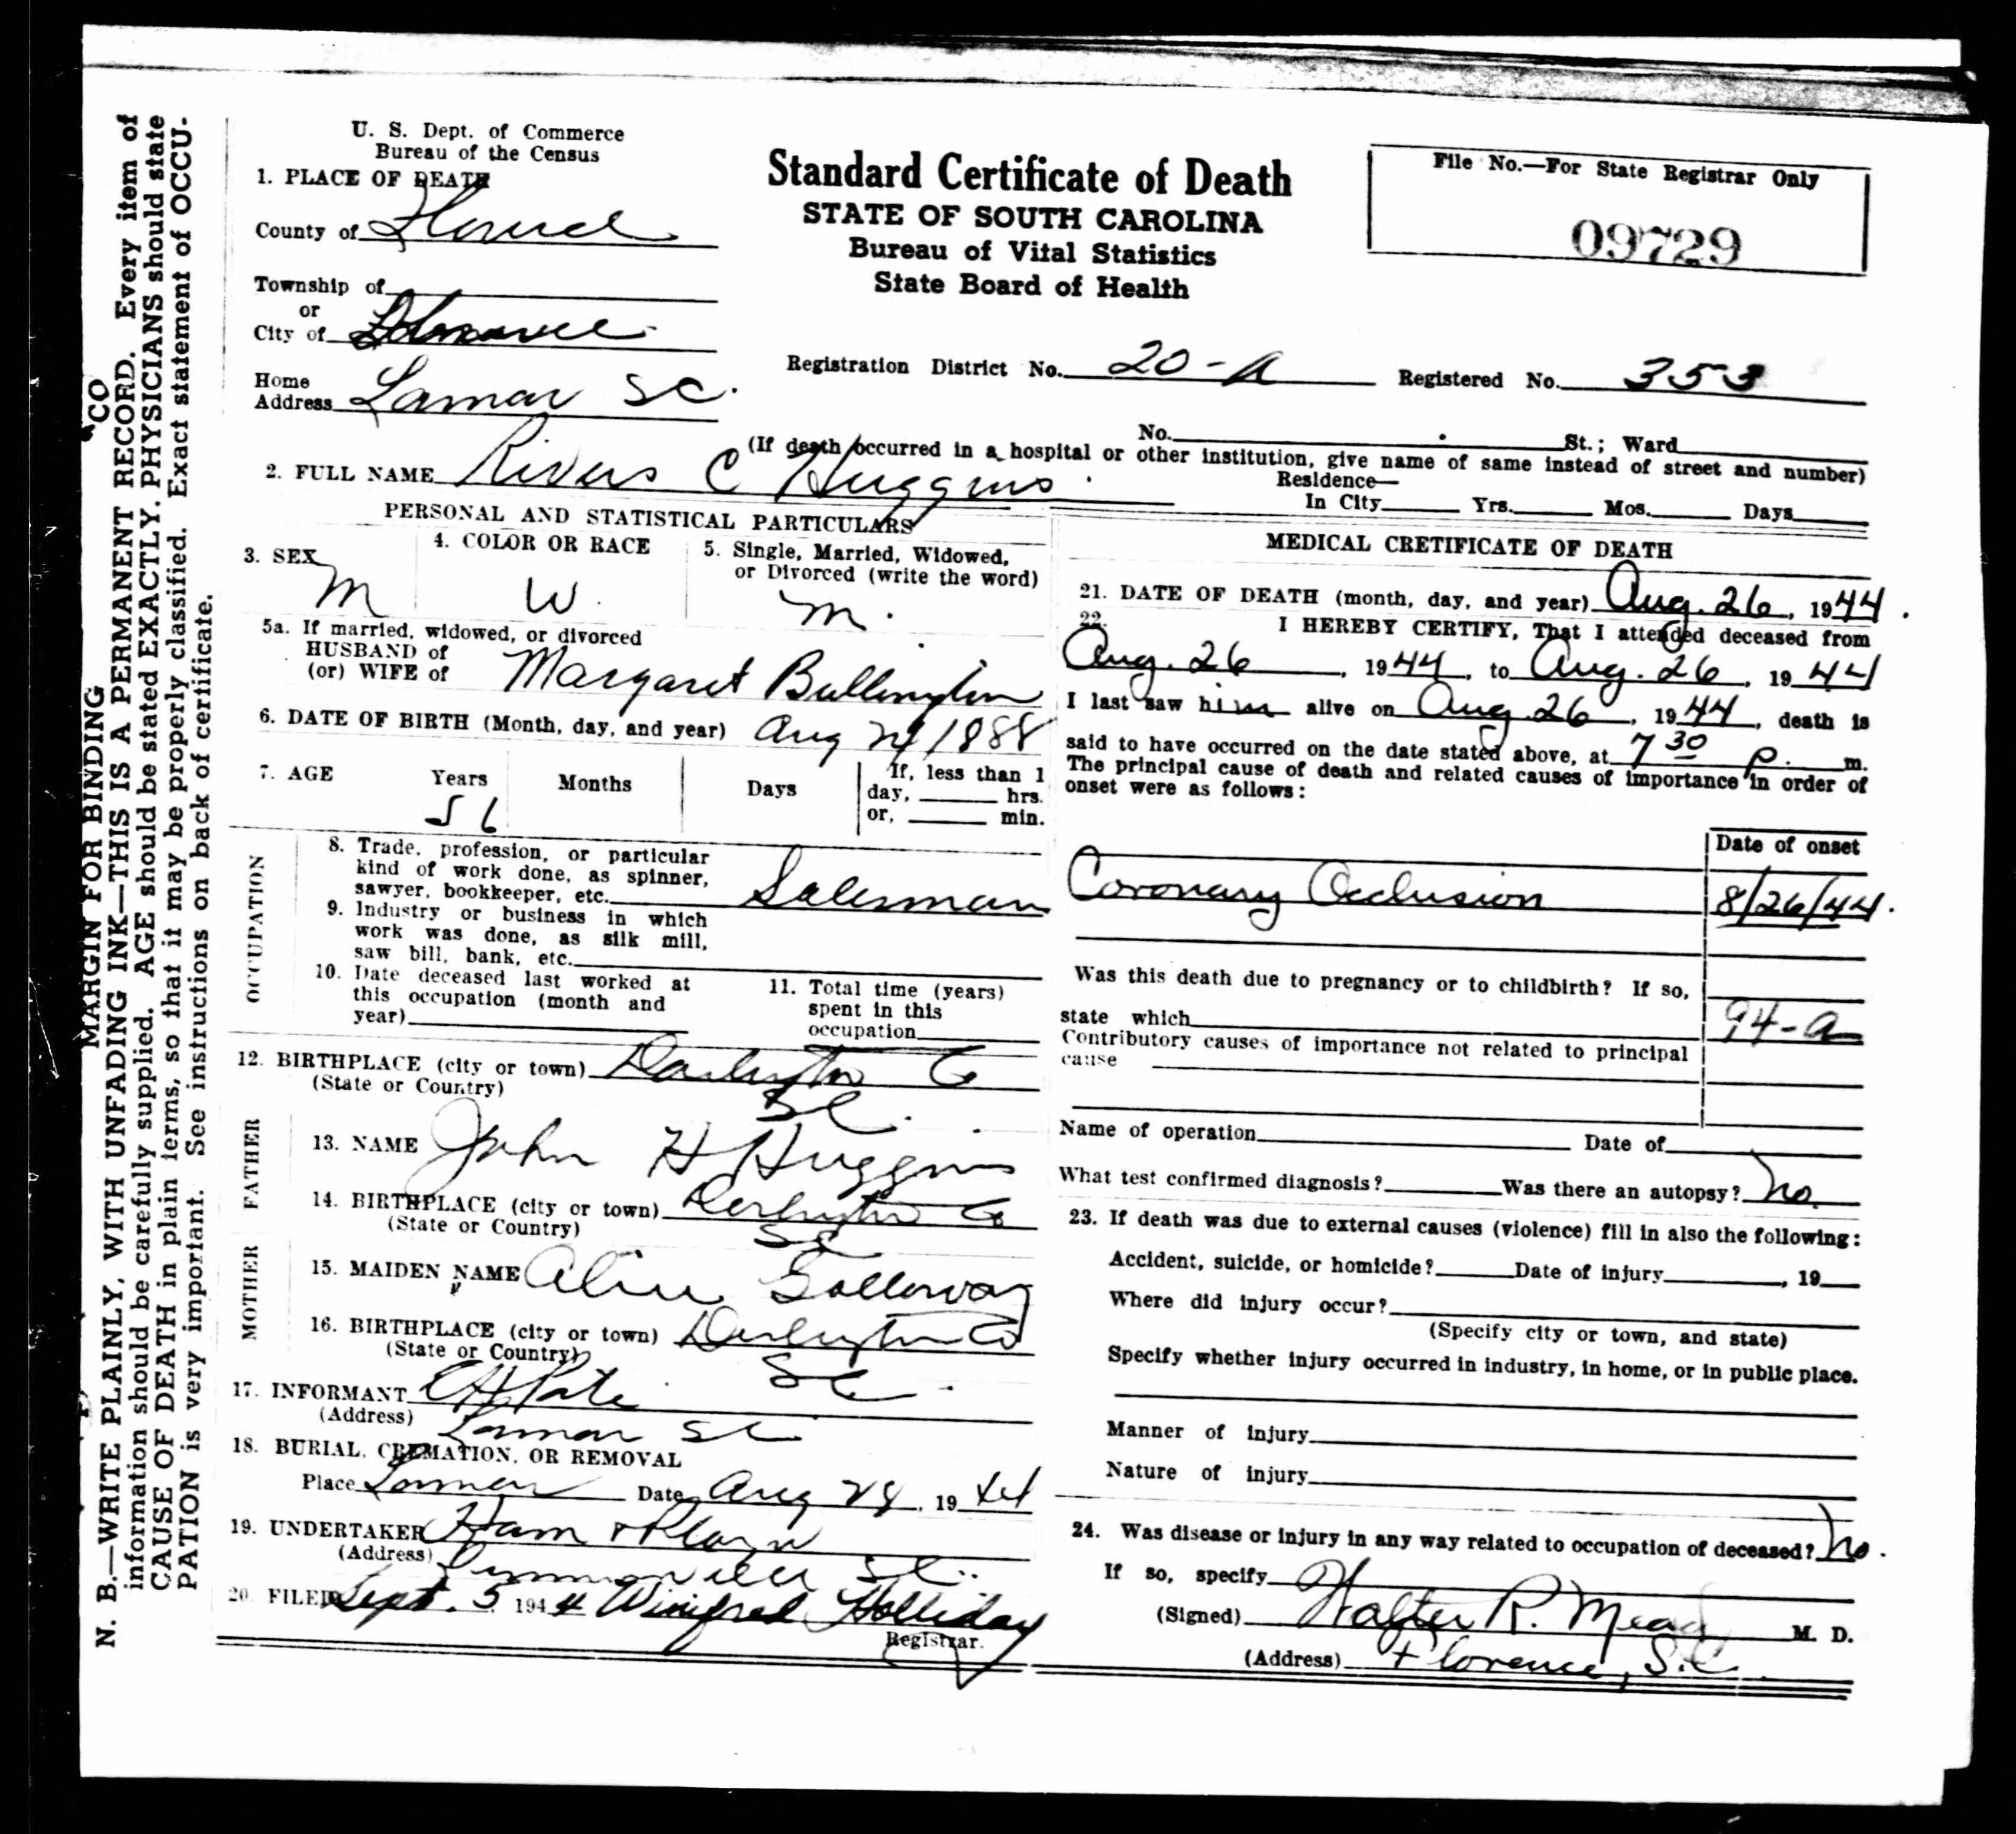 CO
MARGIN FOR BINDING
N. B.—WRITE PLAINLY, WITH UNFADING INK—THIS IS A PERMANENT RECORD. Every item of
information should be carefully supplied. AGE should be stated EXACTLY. PHYSICIANS should state
CAUSE OF DEATH in plain terms, so that it may be properly classified. Exact statement of OCCU-
PATION is very important. See instructions on back of certificate.
U. S. Dept. of Commerce
Bureau of the Census
Standard Certificate of Death
STATE OF SOUTH CAROLINA
Bureau of Vital Statistics
State Board of Health
File No.—For State Registrar Only
09729
1. PLACE OF DEATH
County of
Township of
or
City of
Home
Address Lamar SC.
Registration District No. 20-A Registered No. 353
No. St.; Ward
(If death occurred in a hospital or other institution, give name of same instead of street and number)
2. FULL NAME Rivers C Huggins
Residence—
In City Yrs. Mos. Days
PERSONAL AND STATISTICAL PARTICULARS
3. SEX M
4. COLOR OR RACE W.
5. Single, Married, Widowed,
or Divorced (write the word)
M.
5a. If married, widowed, or divorced
HUSBAND of
(or) WIFE of Margaret Bullington
6. DATE OF BIRTH (Month, day, and year) Aug 24 1888
7. AGE Years Months Days If, less than 1
day, hrs.
or, min.
56
OCCUPATION
8. Trade, profession, or particular
kind of work done, as spinner,
sawyer, bookkeeper, etc. Salesman
9. Industry or business in which
work was done, as silk mill,
saw bill, bank, etc.
10. Date deceased last worked at
this occupation (month and
year)
11. Total time (years)
spent in this
occupation
12. BIRTHPLACE (city or town) Darlington Co
(State or Country) SC.
FATHER
13. NAME John H Huggins
14. BIRTHPLACE (city or town) Darlington Co
(State or Country) SC
MOTHER
15. MAIDEN NAME Alice Galloway
16. BIRTHPLACE (city or town) Darlington Co
(State or Country) SC.
17. INFORMANT Pate
(Address) Lamar SC
18. BURIAL, CREMATION, OR REMOVAL
Place Lamar Date Aug 28, 1944
19. UNDERTAKER Ham
(Address) S.C.
20 FILED Sept. 5 1944 Winifred Holliday
Registrar.
MEDICAL CRETIFICATE OF DEATH
21. DATE OF DEATH (month, day, and year) Aug. 26, 1944.
22. I HEREBY CERTIFY, That I attended deceased from
Aug. 26, 1944, to Aug. 26, 1944
I last saw him alive on Aug. 26, 1944, death is
said to have occurred on the date stated above, at 7 30 P. m.
The principal cause of death and related causes of importance in order of
onset were as follows:
Date of onset
Coronary Occlusion 8/26/44.
Was this death due to pregnancy or to childbirth? If so,
state which 94-a
Contributory causes of importance not related to principal
cause
Name of operation Date of
What test confirmed diagnosis? Was there an autopsy? No
23. If death was due to external causes (violence) fill in also the following:
Accident, suicide, or homicide? Date of injury, 19
Where did injury occur?
(Specify city or town, and state)
Specify whether injury occurred in industry, in home, or in public place.
Manner of injury
Nature of injury
24. Was disease or injury in any way related to occupation of deceased? No.
If so, specify
(Signed) Walter R. Mead M. D.
(Address) Florence, S.C.